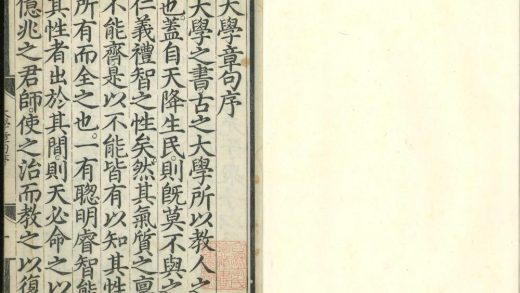 大學章句序
大學之書古之大學所以教人之
也蓋自天降生民則既莫不與之
仁義禮智之性矣然其氣質之稟
不能齊是以不能皆有以知其性
所有而全之也一有聰明睿智能
其性者出於其閒則天必命之以
億兆之君師使之治而教之以復